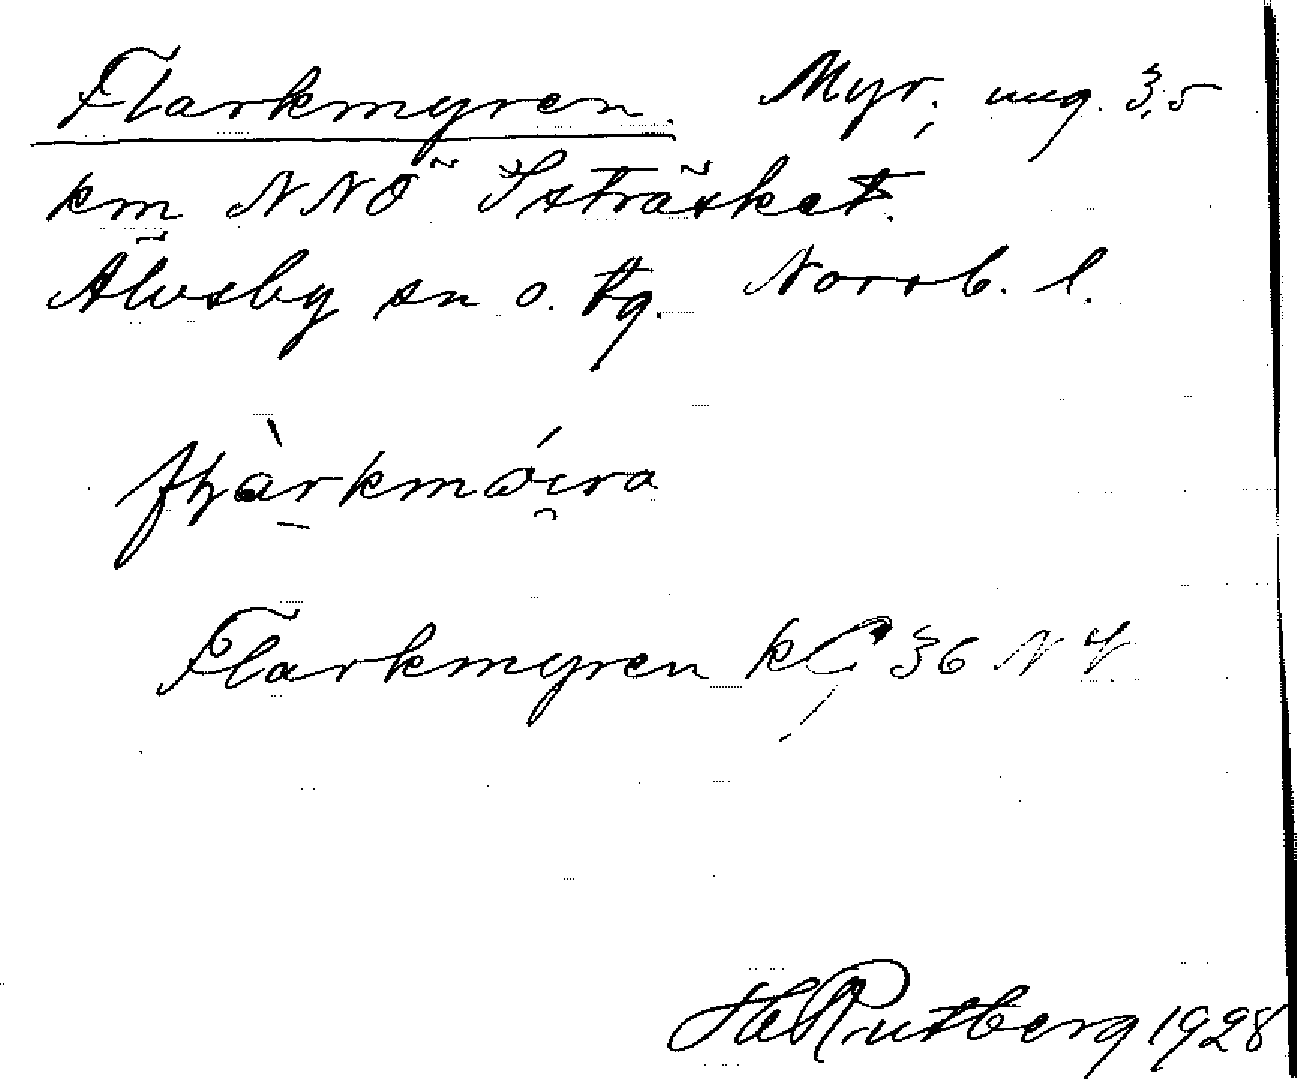 Flarkmyren. Myr, ung. 3,5
km NNÖ Isträsket.
Älvsby sn o. tg. Norrb. l.
Flarkmyren kç 36 NV.
Hd Rutberg 1928